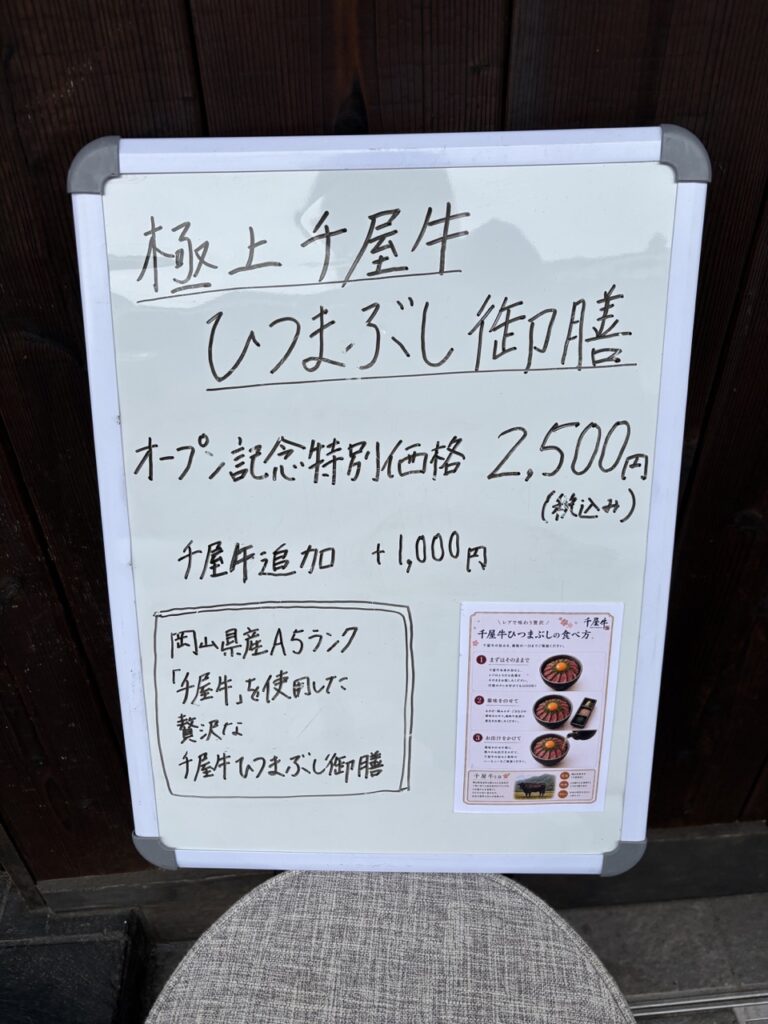 極上千屋牛
ひつまぶし御膳
オープン記念特別価格 2,500円
(税込み)
千屋牛追加 +1,000円
岡山県産A5ランク
「千屋牛」を使用した
贅沢な
千屋牛ひつまぶし御膳
\レアで味わう贅沢/
千屋牛
千屋牛ひつまぶしの食べ方
1 まずはそのままで
2 薬味をのせて
3 お出汁をかけて
千屋牛とは